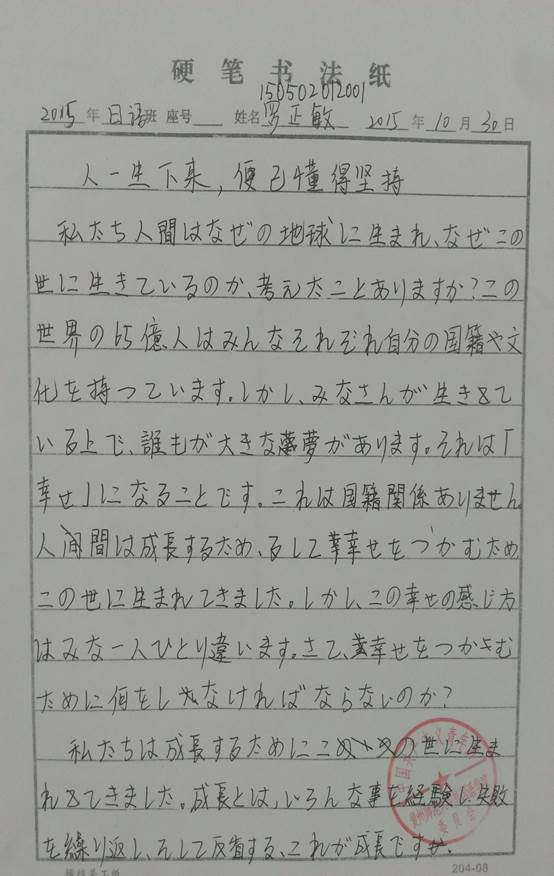 硬笔书法纸
150502012001
2015年 日语班 座号 姓名 罗正敏 2015年10月30日
人一生下来，便已懂得坚持
私たち人間はなぜの地球に生まれ、なぜこの
世に生きているのか、考えたことありますか？この
世界の65億人はみんなそれぞれ自分の国籍や文
化を持っています。しかし、みなさんが生きて
いる上で、誰もが大きな夢があります。それは「
幸せ」になることです。これは国籍関係ありません。
人間は成長するため、そして幸せをつかむため
この世に生まれてきました。しかし、この幸せの感じ方
はみな一人ひとり違います。さて、幸せをつかむ
ために何をしなければならないのか？
私たちは成長するためにこの世に生ま
れてきました。成長とは、いろんな事を経験し、失敗
を繰り返し、そして反省する、これが成長です
204-08